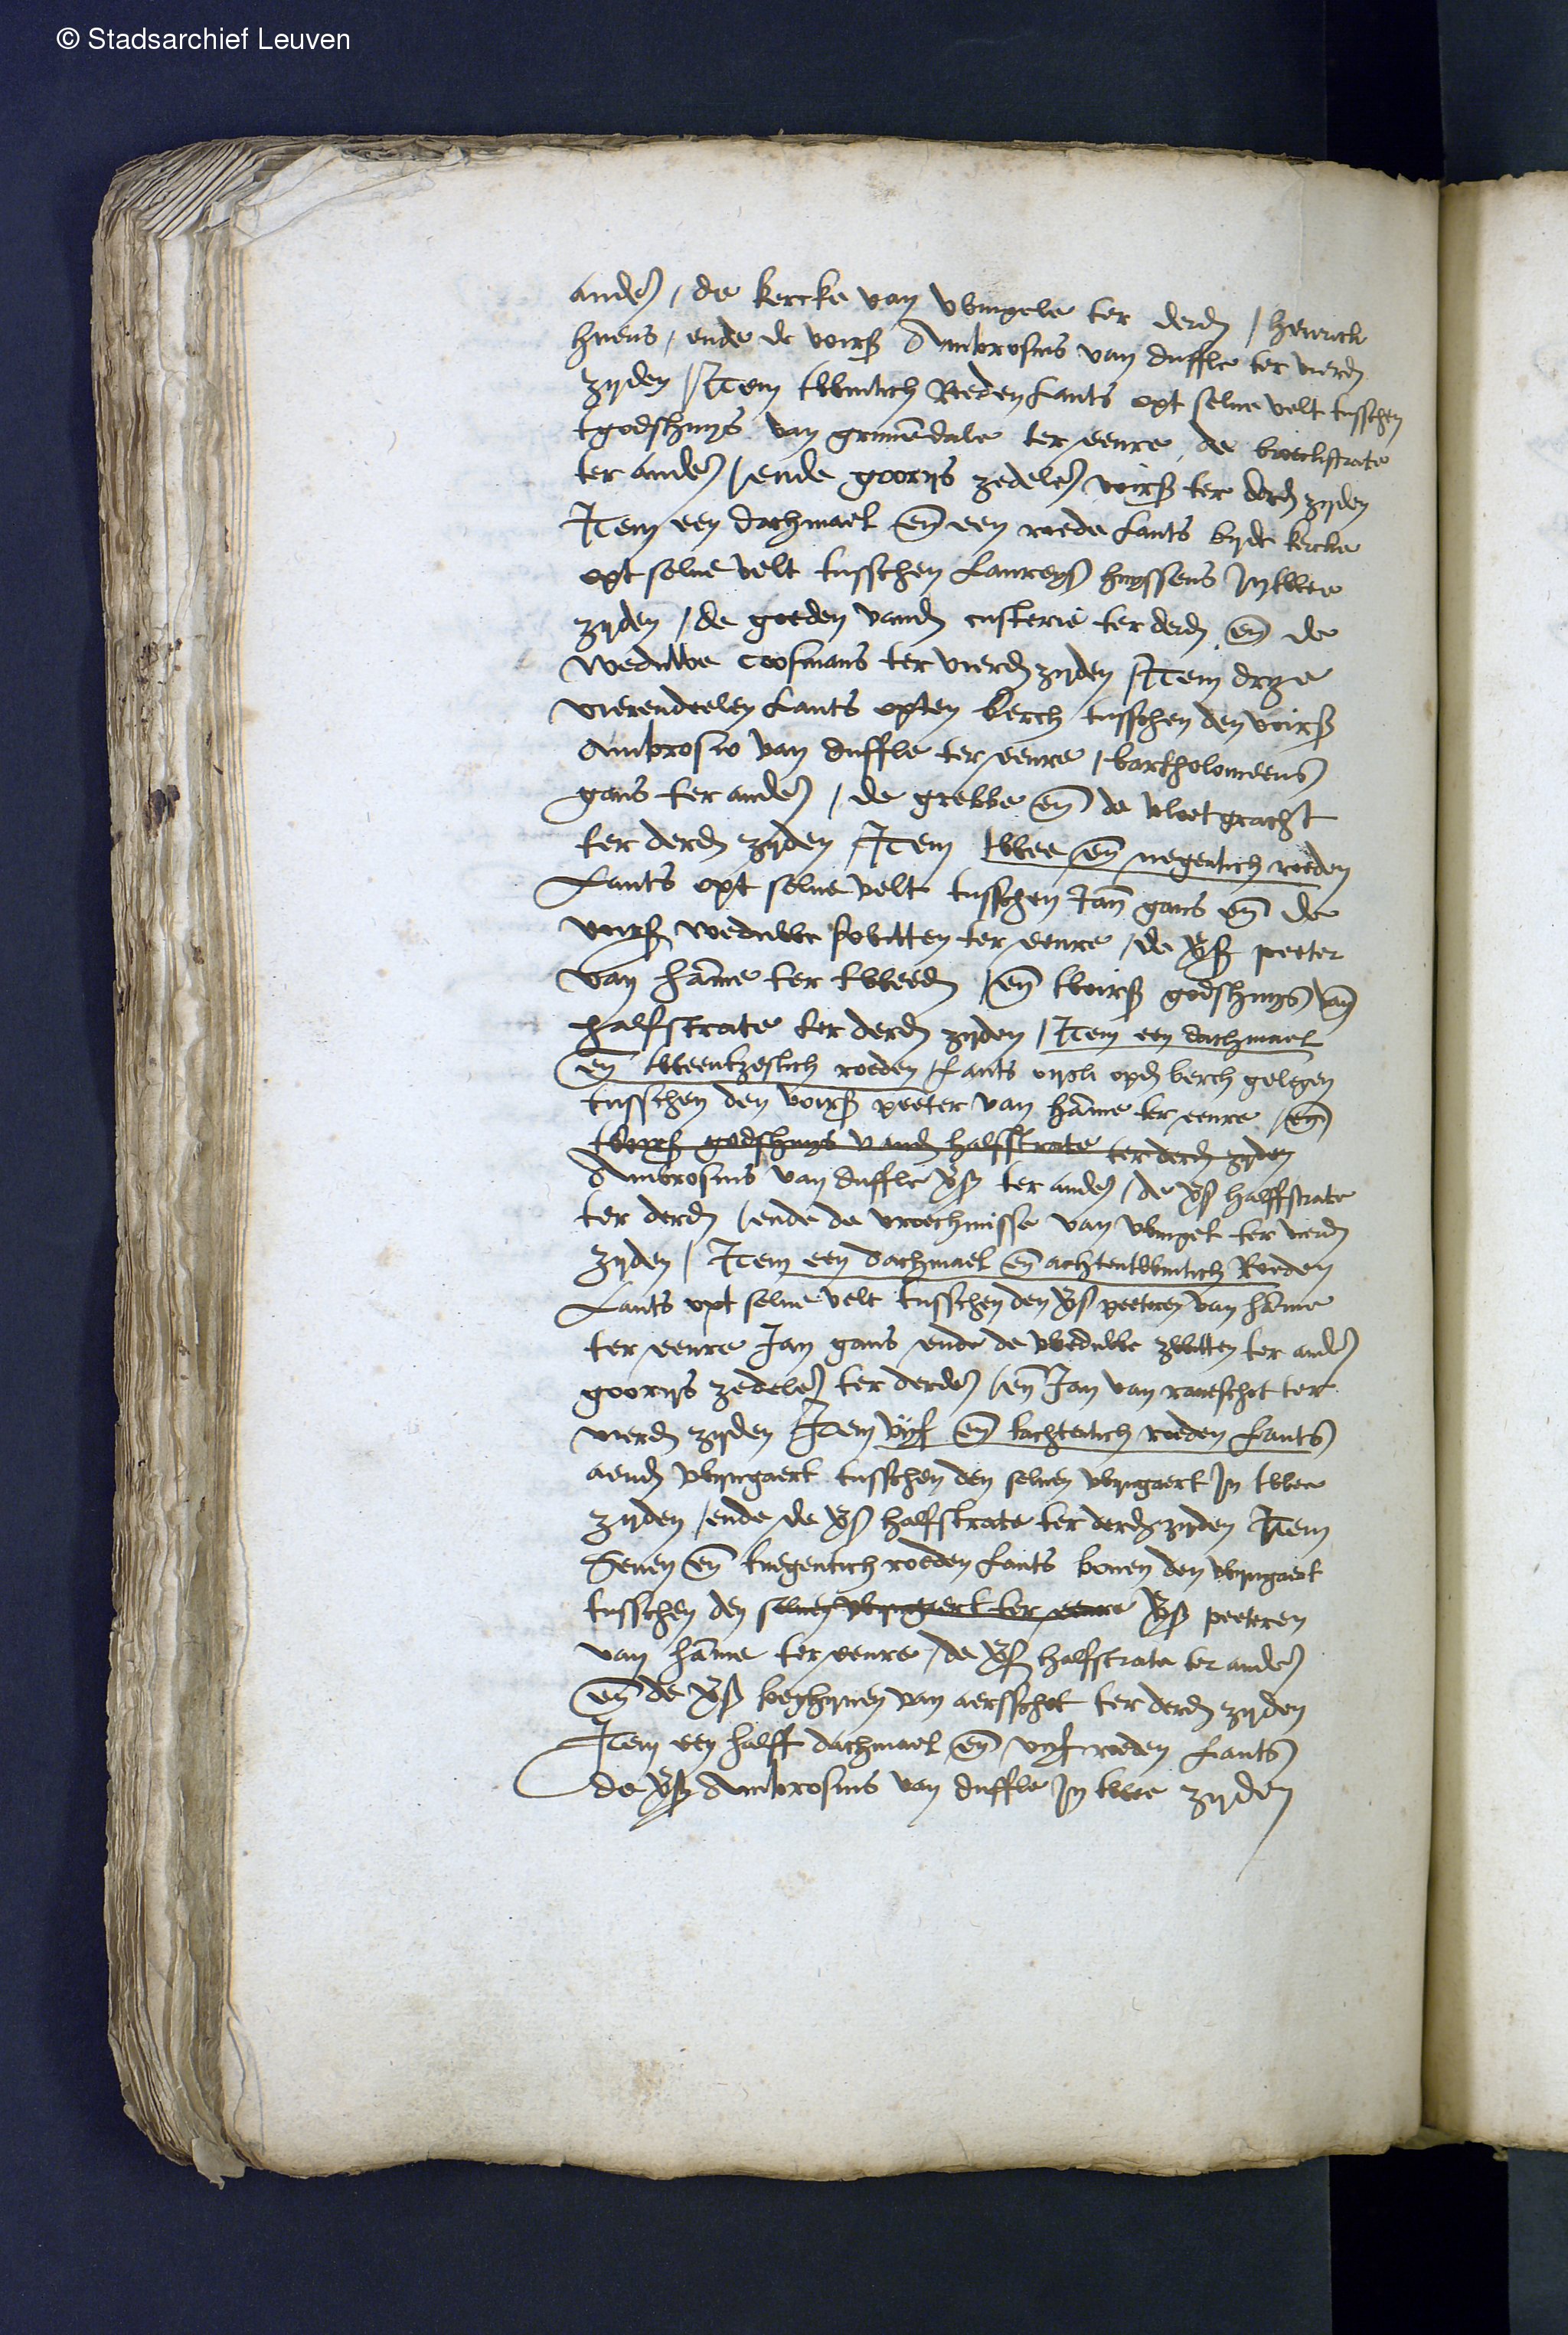 © Stadsarchief Leuven
ander / de kercke van Wingele ter derd / henrick
hueus / ende de voirs Ambrosius van duffle ter vierd
zijden / Item twintich Roeden Lants opt selve velt tusschen
tgodshuys van grimēdale ter eenre de broeckstrate
ter ander / ende goorijs zedeler voirs ter derd zijden
Item een dachmael eñ een roede Lants bijde kercke
opt selve velt tusschen Laureys huyssens In twee
zijden / de goeden vand custerie ter derd eñ de
weduwe Coosmans ter vierd zijden / Item drye
vierendeelen Lants opten berch tusschen den voirs
Ambrosio van duffle ter eenre / bartholomeeus
gans ter ander / de grebbe eñ de vloetgracht
ter derd zijden Item twee eñ negentich roeden
Lants opt selve velt tusschen Jañ gans eñ de
voirs weduwe ter eenre / de vs peeter
van hāme ter tweed / eñ tvoirs godshuys vañ
halfstrate ter derd zijden / Item een dachmael
eñ tweentzestich roeden Lants opd berch gelegen
tusschen den voirs peeter van hāme ter eenre / eñ
tvoirs godshuys vand halfstrate ter derd zijden
Ambrosius van duffle vs ter ander / de vs halffstrate
ter derd / ende de vroechmisse van Wingel ter vierd
zijden / Item een dachmael eñ achtentwintich Roeden
Lants opt selve velt tusschen den vs peeteren van hāme
ter eenre Jan gans ende de weduwe zwitten ter ander
goorijs zedeler ter derder / eñ Jan van raveschot ter
vierd zijden Item vijf eñ tachtentich roeden Lants
aend wijngaert tusschen den selven wijngaert In twee
zijden / ende de vs halfstrate ter derd zijden Item
Seven eñ tnegentich roeden Lants boven den wijngaert
tusschen den selven wijngaert ter eenre vs peeteren
van hāme ter eenre / de vs halfstrate ter ander
eñ de vs beghijnen van aersschot ter derd zijden
Item een halff dachmael eñ vijf roeden Lants
de vs Ambrosius van duffle In twee zijden